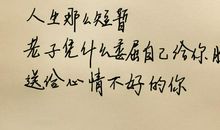 人生那么短暂
老子凭什么委屈自己给你
送给心情不好的你